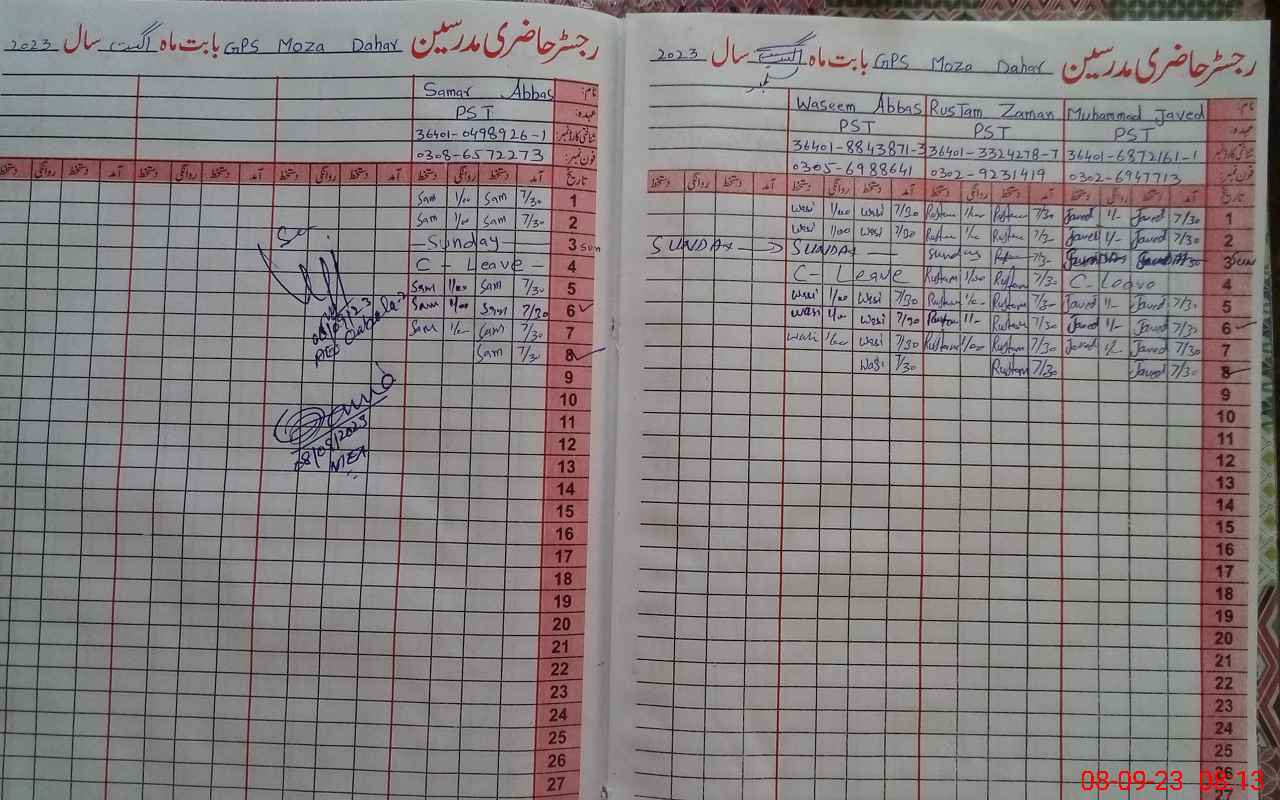 رجسٹر حاضری مدرسین GPS Moza Dahar بابت ماہ اگست سال 2023
نام: Samar Abbas
عہدہ: PST
شناختی کارڈ نمبر: 36401-0498926-1
فون نمبر: 0308-6572273
تاریخ آمد دستخط روانگی دستخط آمد دستخط روانگی دستخط آمد دستخط روانگی دستخط آمد دستخط روانگی دستخط
Sam 1/00 Sam 7/30 1
Sam 1/00 Sam 7/30 2
Sunday 3 Sun
C - Leave - 4
Sam 1/00 Sam 7/30 5
Sam 1/00 Sam 7/30 6
Sam 1/- Sam 7/30 7
Sam 7/30 8
9
10
11
12
13
14
15
16
17
18
19
20
21
22
23
24
25
26
27
08/09/2023
رجسٹر حاضری مدرسین GPS Moza Dahar بابت ماہ سال 2023
نام: Muhammad Javed Rustam Zaman Waseem Abbas
عہدہ: PST PST PST
شناختی کارڈ نمبر: 36401-6872161-1 36401-3324278-7 36401-8843871-3
فون نمبر: 0302-6947713 0302-9231419 0305-6988641
تاریخ آمد دستخط روانگی دستخط آمد دستخط روانگی دستخط آمد دستخط روانگی دستخط آمد دستخط روانگی دستخط
Wasi 1/00 Wasi 7/30 Rustam 1/00 Rustam 7/30 Javed 1/- Javed 7/30 1
Wasi 1/00 Wasi 7/30 Rustam 1/- Rustam 7/30 Javed 1/- Javed 7/30 2
SUNDAY SUNDAY Sunday 3 Sun
C - Leave Rustam 1/00 Rustam 7/30 C - Leave 4
Wasi 1/00 Wasi 7/30 Rustam 1/- Rustam 7/30 Javed 1/- Javed 7/30 5
Wasi 1/00 Wasi 7/30 Rustam 1/- Rustam 7/30 Javed 1/- Javed 7/30 6
Wasi 1/00 Wasi 7/30 Rustam 1/00 Rustam 7/30 Javed 1/- Javed 7/30 7
Wasi 7/30 Rustam 7/30 Javed 7/30 8
9
10
11
12
13
14
15
16
17
18
19
20
21
22
23
24
25
26
27
08-09-23 08:13